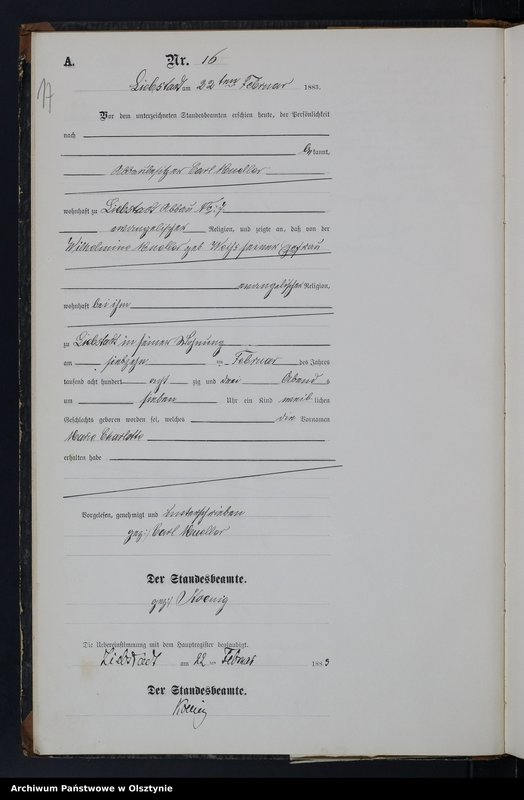 A.
Nr. 16
17
Liebstadt am 22ten Februar 1883.
Vor dem unterzeichneten Standesbeamten erschien heute, der Persönlichkeit
nach
kannt,
Carl Mueller
wohnhaft zu Liebstadt Abbau No: 7
evangelischer Religion, und zeigte an, daß von der
Wilhelmine Mueller geb. Weiß seiner Ehefrau
evangelischer Religion,
wohnhaft bei ihm
zu Liebstadt in seiner Wohnung
am siebzehn ten Februar des Jahres
tausend acht hundert acht zig und drei Abend s
um sieben Uhr ein Kind weib lichen
Geschlechts geboren worden sei, welches die Vornamen
Marie Charlotte
erhalten habe
Vorgelesen, genehmigt und unterschrieben
gez: Carl Mueller
Der Standesbeamte.
gez: Koenig
Die Uebereinstimmung mit dem Hauptregister beglaubigt.
Liebstadt am 22 ten Februar 1883
Der Standesbeamte.
Koenig
Archiwum Państwowe w Olsztynie